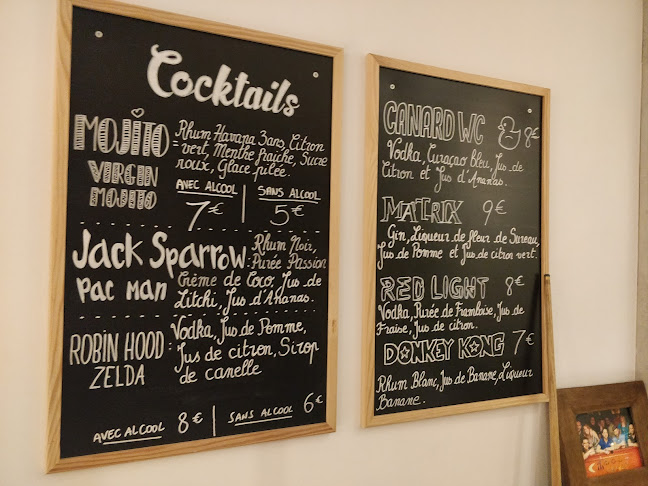 Cocktails
MOJITO
VIRGIN
MOJITO
= Rhum Havana 3ans, Citron
vert, Menthe fraîche, Sucre
roux, Glace pilée.
AVEC ALCOOL
7€
SANS ALCOOL
5€
Jack Sparrow
PAC MAN
: Rhum Noir,
Purée Passion
Crème de Coco, Jus de
Litchi, Jus d'Ananas.
ROBIN HOOD
ZELDA
: Vodka, Jus de Pomme,
Jus de citron, Sirop
de canelle
AVEC ALCOOL 8€
SANS ALCOOL 6€
CANARD WC 8€
Vodka, Curaçao bleu, Jus de
Citron et Jus d'Ananas.
MATRIX 9€
Gin, Liqueur de fleur de Sureau,
Jus de Pomme et Jus de citron vert.
RED LIGHT 8€
Vodka, Purée de Framboise, Jus de
Fraise, Jus de citron.
DONKEY KONG 7€
Rhum Blanc, Jus de Banane, Liqueur
Banane.